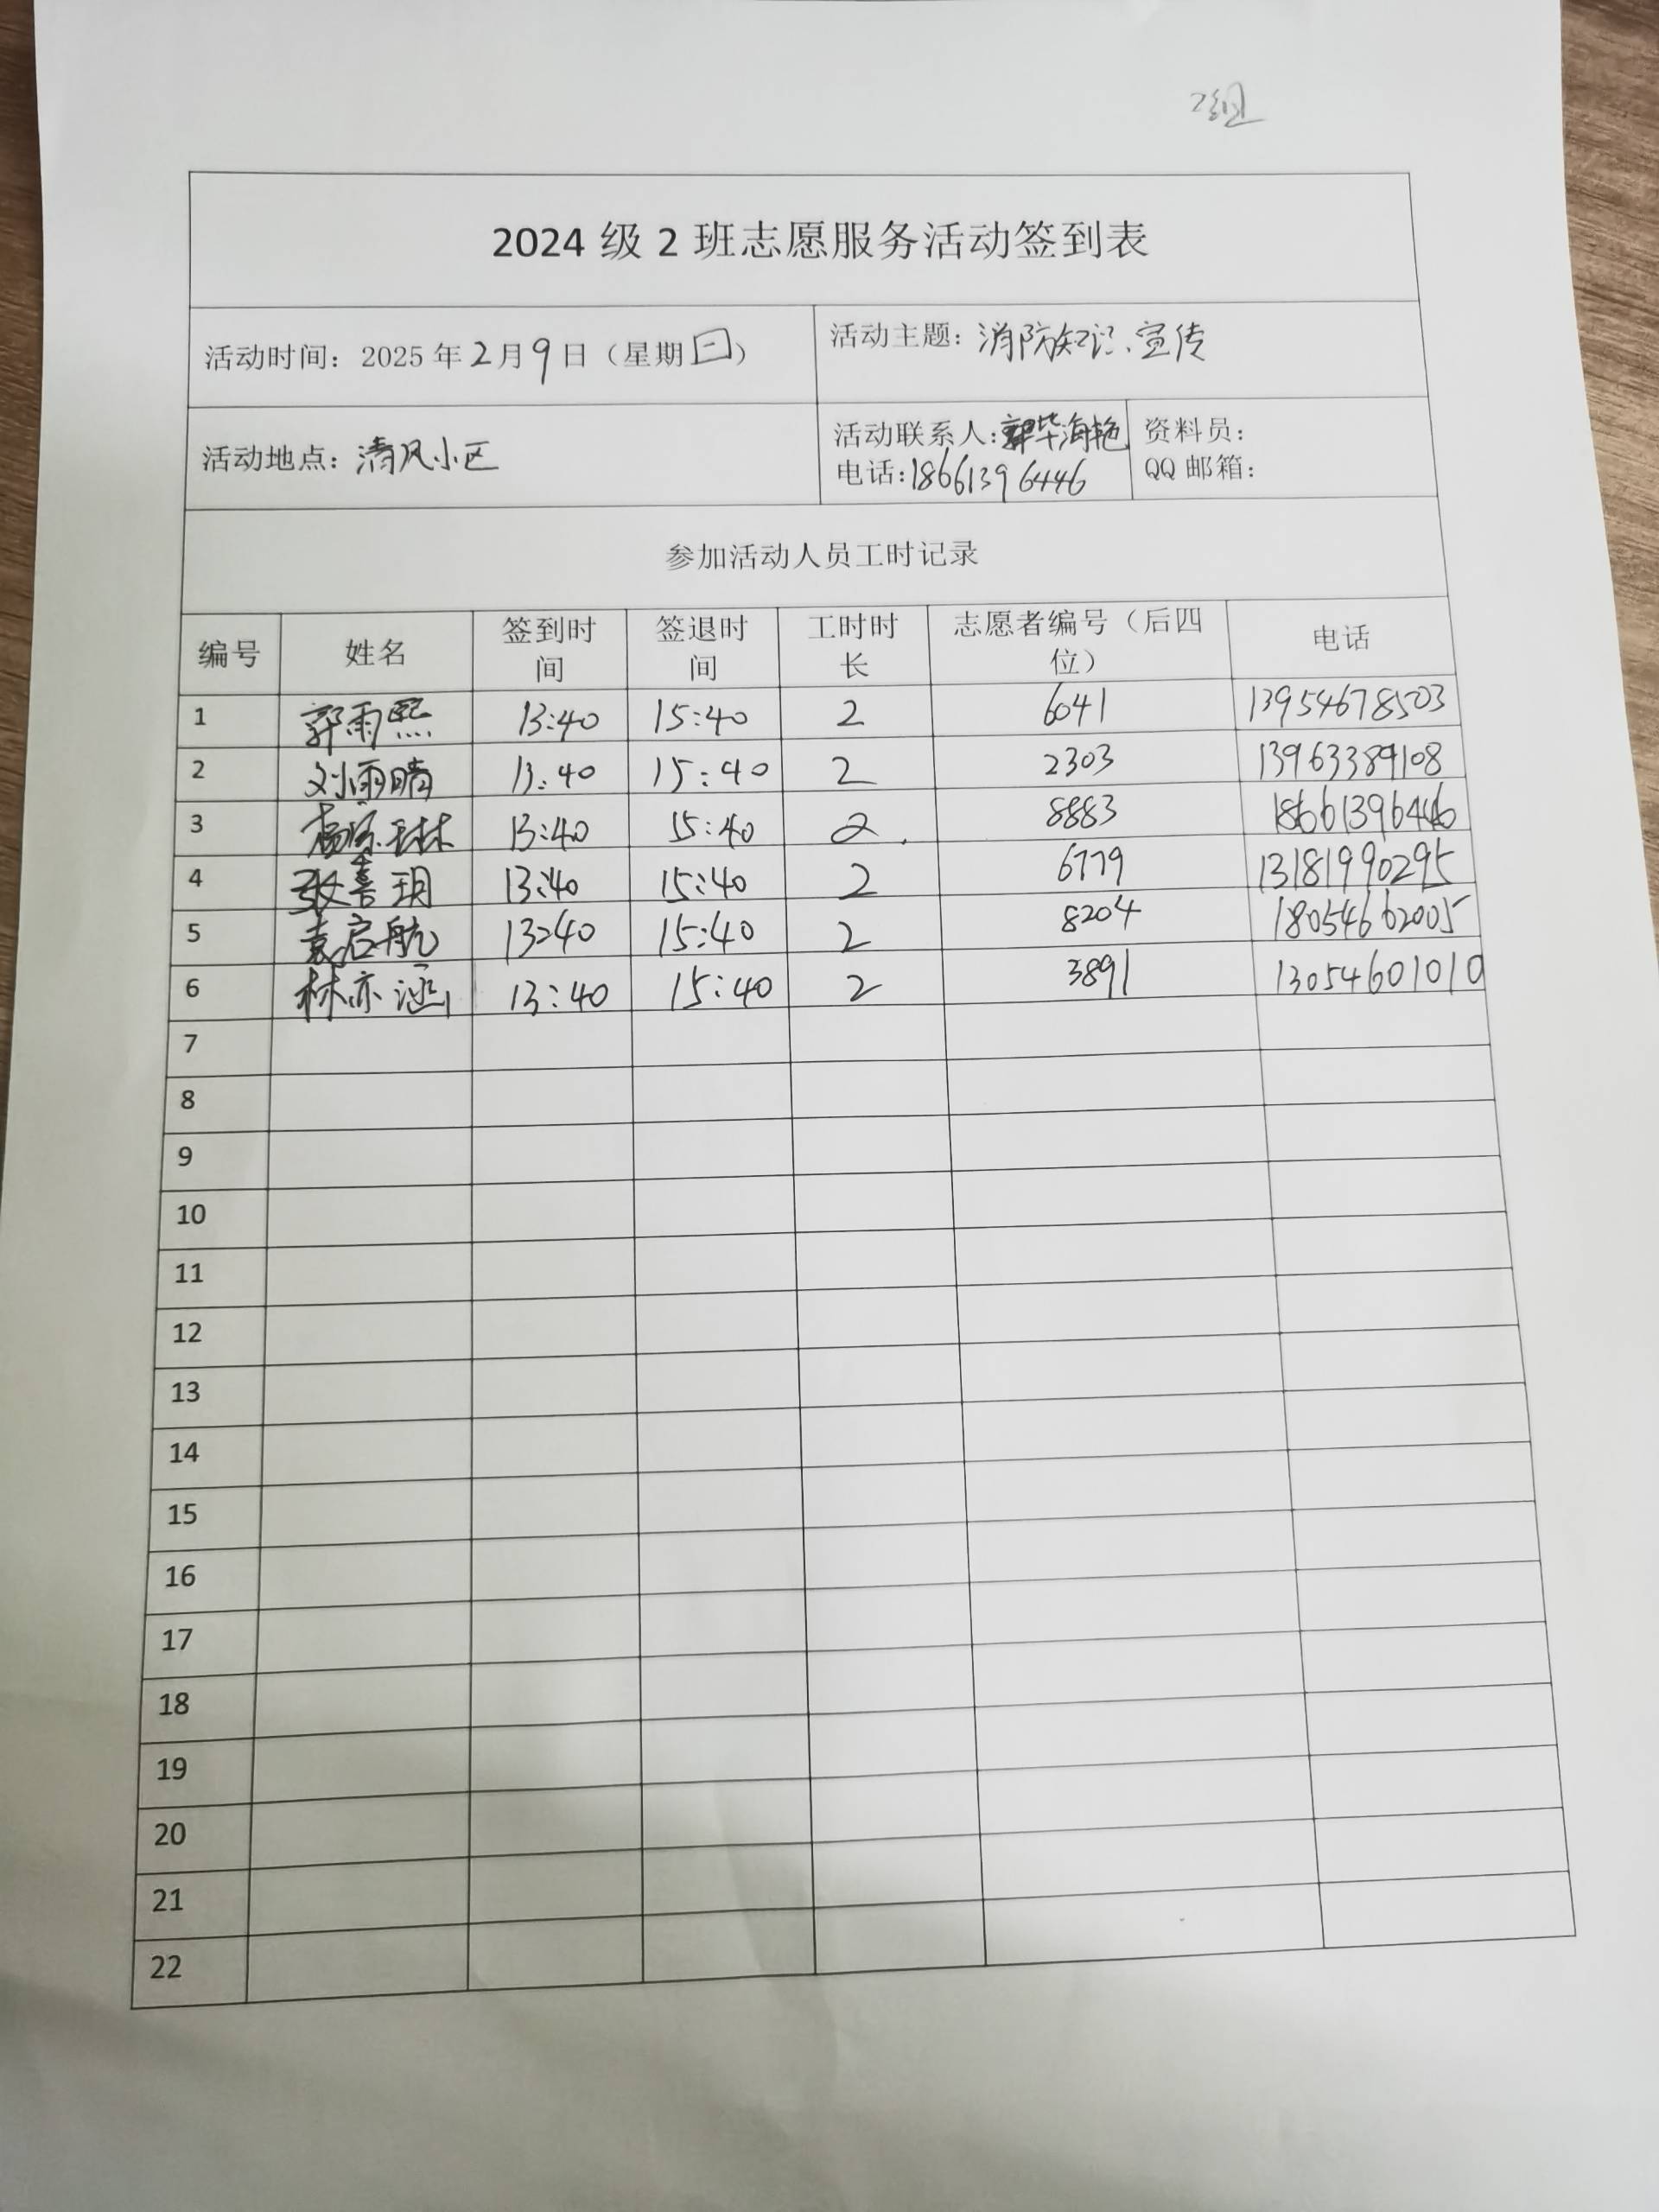 2组
2024 级 2 班志愿服务活动签到表
活动时间：2025 年 2 月 9 日（星期日） 活动主题：消防知识宣传
活动地点：清风小区 活动联系人：毕海艳 资料员：
电话：18661396446 QQ 邮箱：
参加活动人员工时记录
编号 姓名 签到时间 签退时间 工时时长 志愿者编号（后四位） 电话
1 郭雨熙 13:40 15:40 2 6041 13954678503
2 刘雨晴 13:40 15:40 2 2303 13963389108
3 13:40 15:40 2 8883 18661396446
4 张喜玥 13:40 15:40 2 6779 13181990295
5 袁启航 13:40 15:40 2 8204 18054662005
6 林亦涵 13:40 15:40 2 3891 13054601010
7
8
9
10
11
12
13
14
15
16
17
18
19
20
21
22